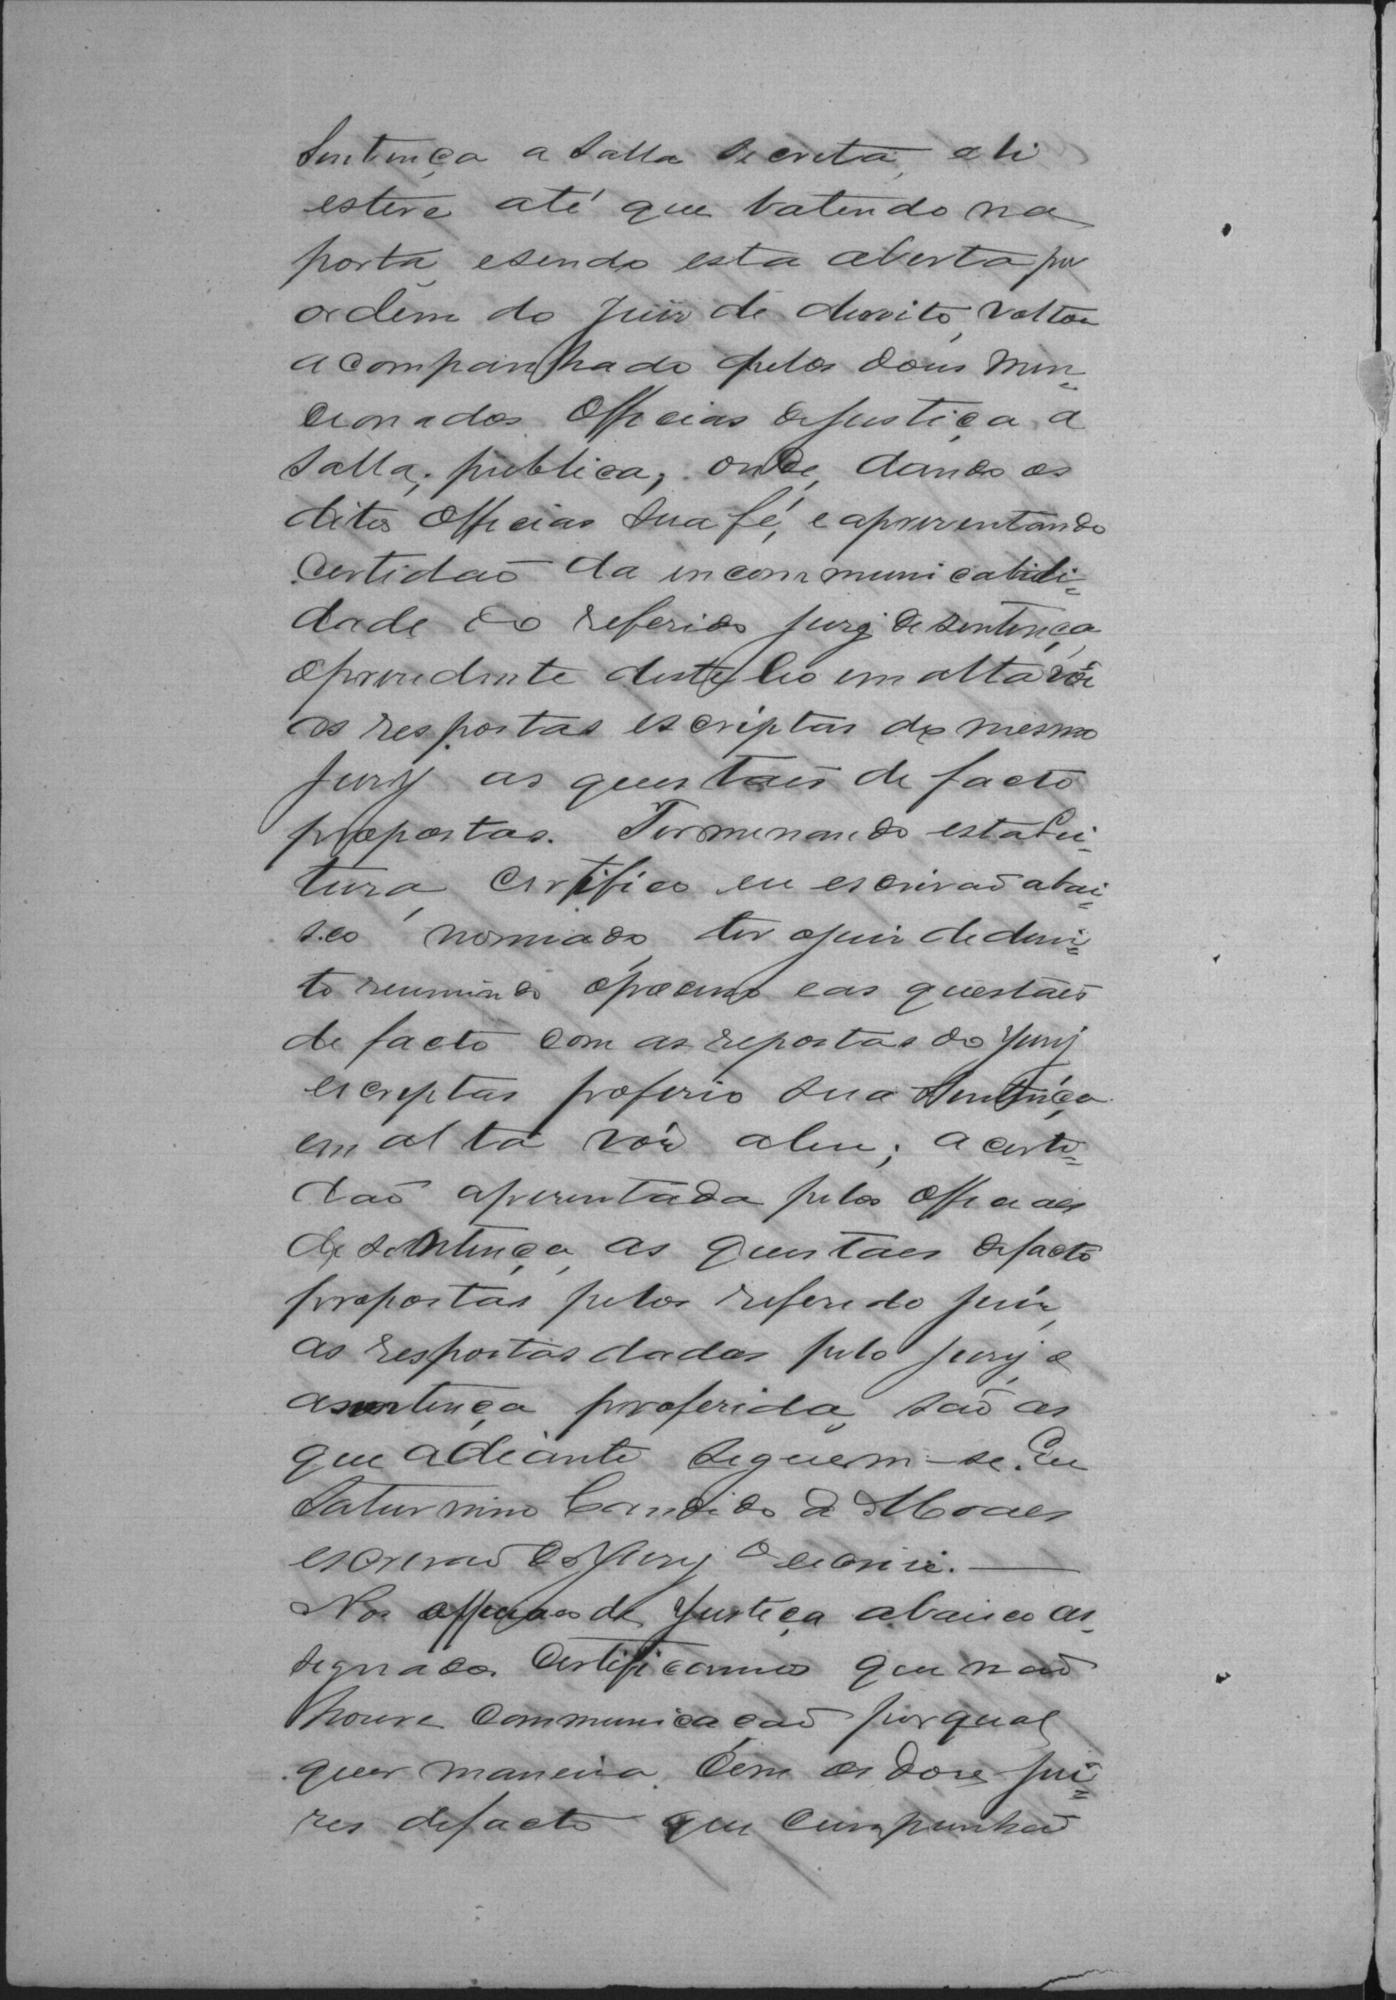 Sentença a salla secreta, ali
esteve até que batendo na
porta esendo esta aberta por
ordem do juiz de direito, voltou
acompanhado pelos dous men-
cionados Officias dejustiça a
salla publica, onde, dando os
ditos Officias sua fé, e aprezentando
certidaõ da incommunicabili-
dade do referido jury de sentença,
oprezidente deste leo em alta vóz
as respostas escriptas do mesmo
jury as questaẽs de facto
propostas. Terminando esta lei-
tura, certifico eu escrivaõ abai-
xo nomiado, ter ojuiz de direi-
to reunindo oprocesso eas questaẽs
de facto com as repostas do jury
escreptas proferio sua sentença
em alta vóz aleu; a certi-
daõ aprezentada pelos officiaes
de sentença, as questaes defacto
propostas pelos referedo juiz,
as respostas dadas pelo jury, e
asentença proferida, saõ as
que adeiante seguem-se. Eu
Saturnino Candido de Moraes
escrivaõ do jury o escrivi.
Nos officiaes de justiça abaixo as-
segnados certificamos que naõ
houve communicaçaõ porqual
quer maneira com os doze jui-
zes defacto que cumpunhaõ